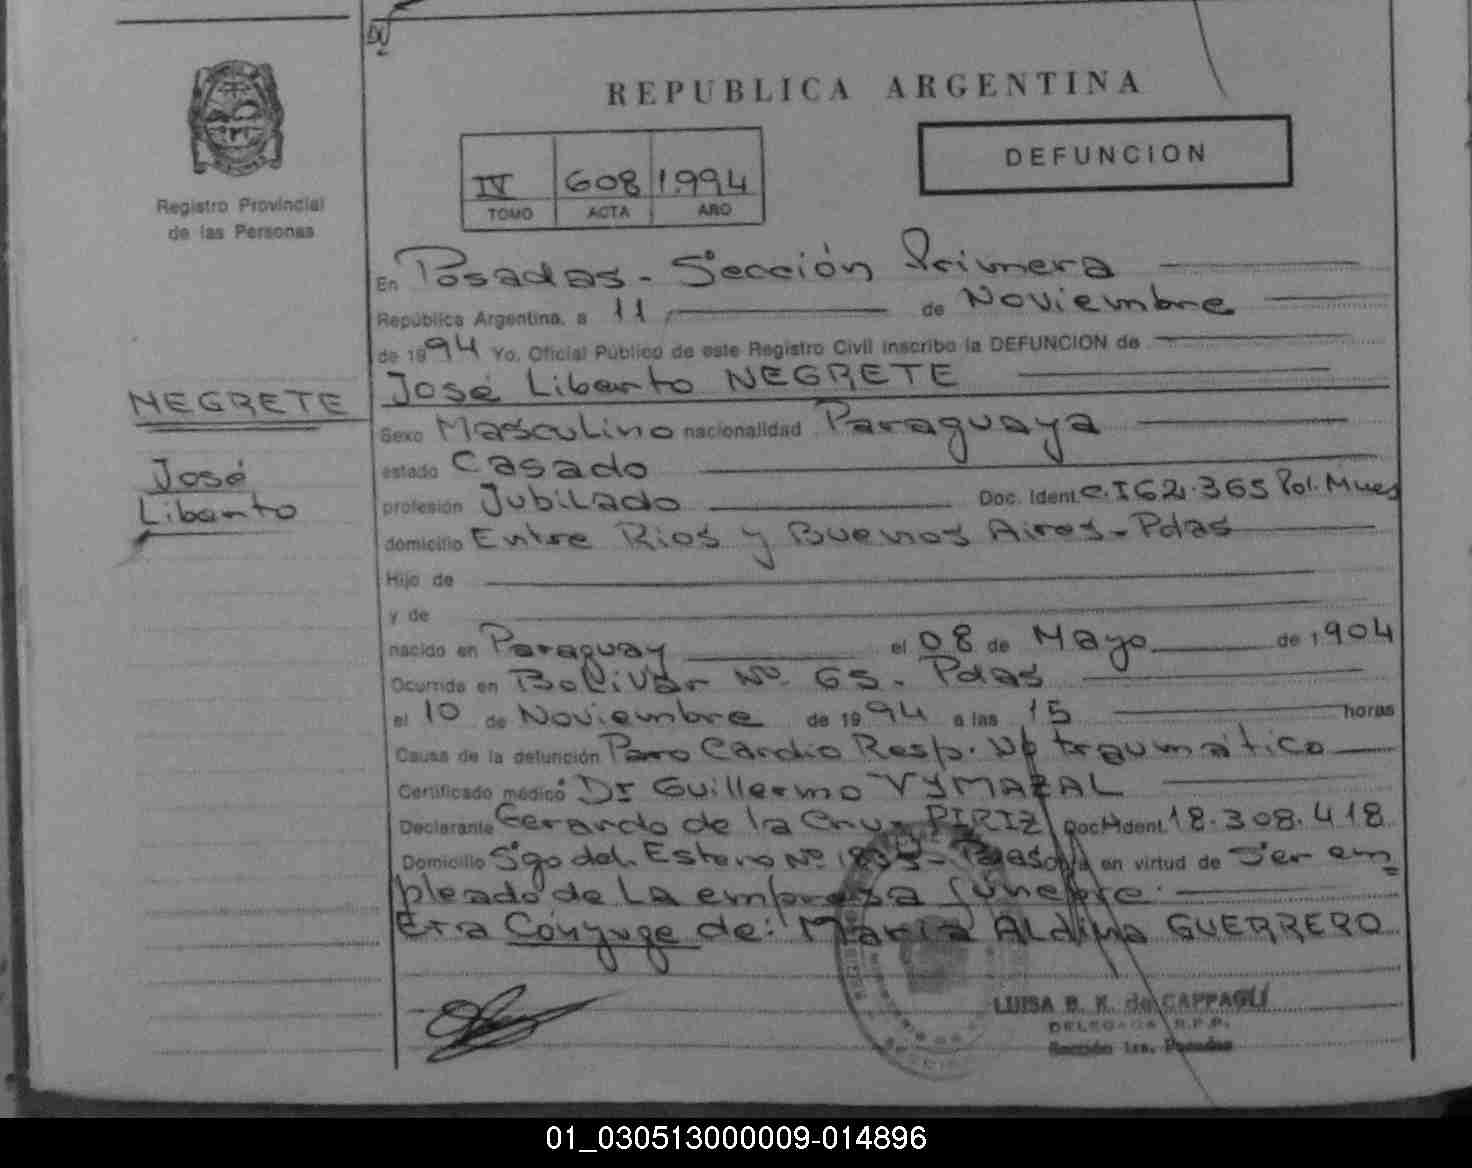 REPUBLICA ARGENTINA
DEFUNCION
IV 608 1.994
TOMO ACTA AÑO
Registro Provincial
de las Personas
En Posadas - Sección Primera
República Argentina, a 11 de Noviembre
de 1994 Yo, Oficial Público de este Registro Civil inscribo la DEFUNCION de
José Libanto NEGRETE
NEGRETE
José
Libanto
Sexo Masculino nacionalidad Paraguaya
estado Casado
profesión Jubilado Doc. Ident. C.I 62.365 Pol. Mnes
domicilio Entre Rios y Buenos Aires - Pdas
Hijo de
y de
nacido en Paraguay el 08 de Mayo de 1904
Ocurrida en Bolivar Nº 65. Pdas
el 10 de Noviembre de 1994 a las 15 horas
Causa de la defunción Paro Cardio Resp. No traumático
Certificado médico Dr Guillermo VYMAZAL
Declarante Gerardo de la Cruz PIRIZ Doc. Ident. 18.308.418
Domicilio S'go del Estero Nº en virtud de Ser em=
pleado de La empresa fúnebre.
Era Cónyuge de: María ALdina GUERRERO
LUISA B. K. de CAPPAGLI
DELEGADA R.P.P.
Sección 1ra. Posadas
01_030513000009-014896